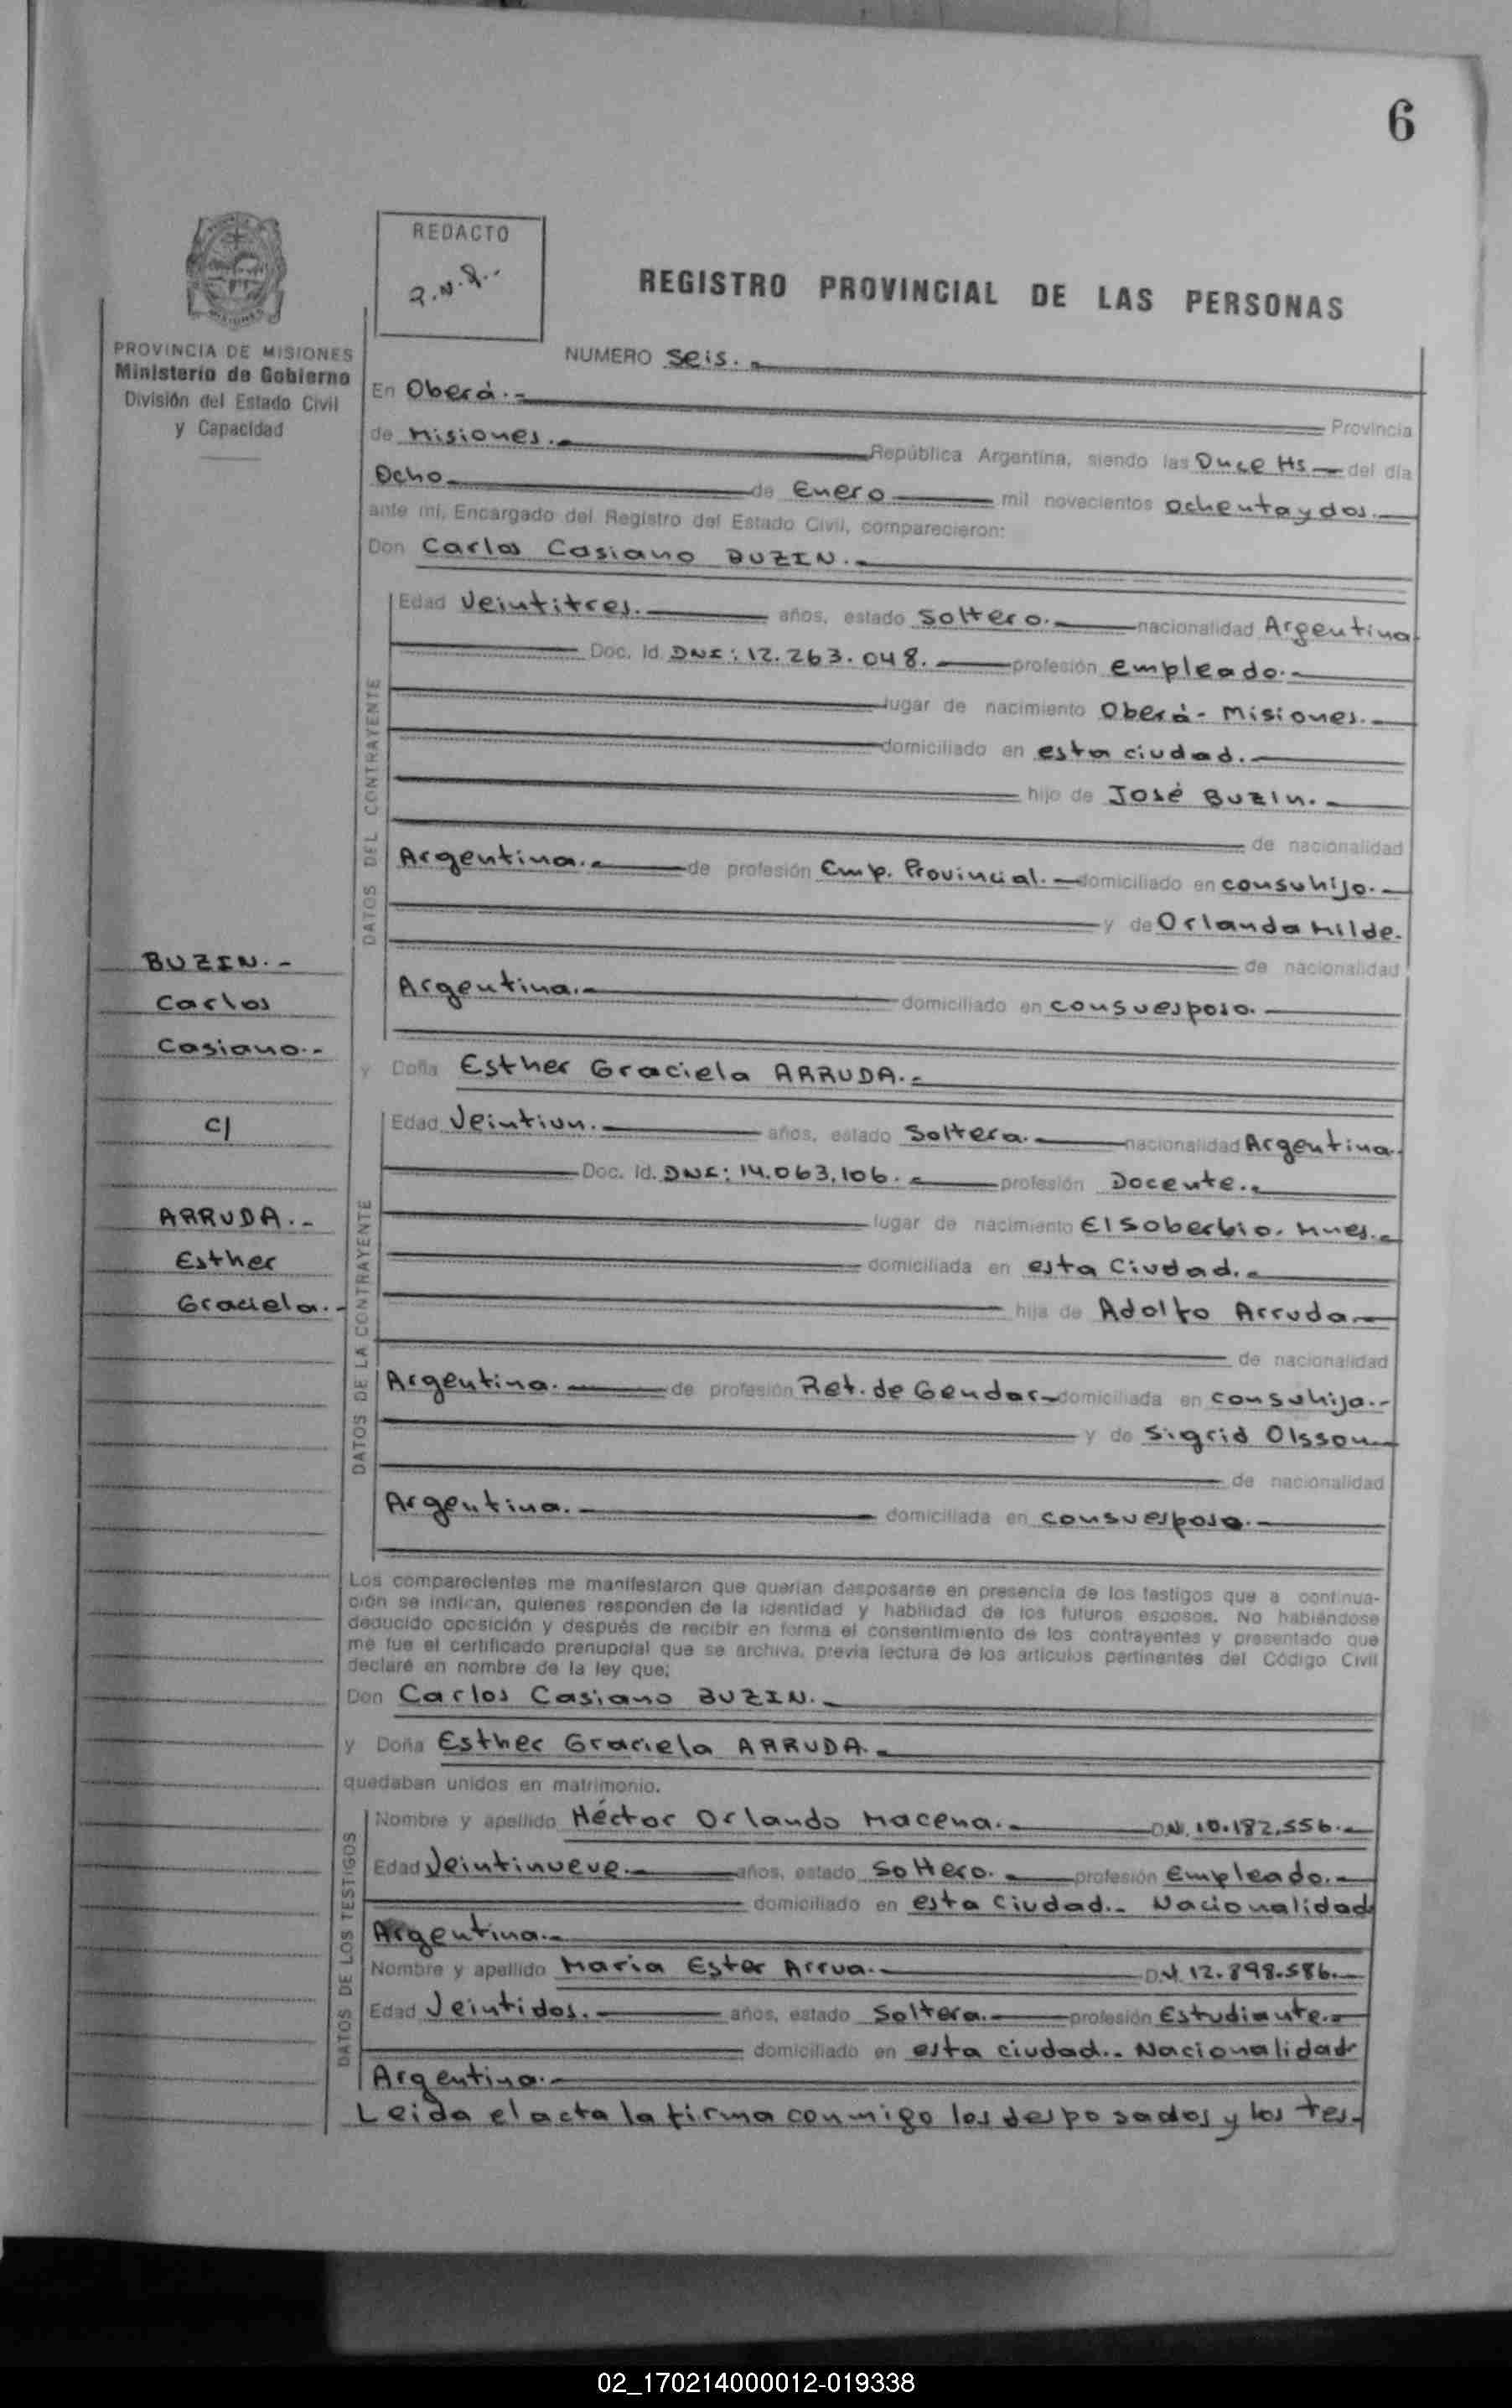 6
REDACTO
REGISTRO PROVINCIAL DE LAS PERSONAS
PROVINCIA DE MISIONES
Ministerio de Gobierno
División del Estado Civil
y Capacidad
NUMERO seis.-
En Oberá.- Provincia
de Misiones.- República Argentina, siendo las Once Hs del día
Ocho de Enero mil novecientos ochenta y dos.-
ante mí, Encargado del Registro del Estado Civil, comparecieron:
Don Carlos Casiano BUZIN.-
DATOS DEL CONTRAYENTE
Edad Veintitres. años, estado Soltero. nacionalidad Argentina
Doc. Id. DNI: 12.263.048. profesión empleado.-
lugar de nacimiento Oberá- Misiones.-
domiciliado en esta ciudad.
hijo de José Buzin.-
de nacionalidad
Argentina.- de profesión Emp. Provincial.- domiciliado en consuhijo.-
y de Orlanda Hilde.
de nacionalidad
Argentina.- domiciliado en consuesposo.
y Doña Esther Graciela ARRUDA.-
DATOS DE LA CONTRAYENTE
Edad Veintiun. años, estado Soltera. nacionalidad Argentina.
Doc. Id. DNI: 14.063.106.- profesión Docente.-
lugar de nacimiento El Soberbio. Mnes.-
domiciliada en esta Ciudad.-
hija de Adolfo Arruda
de nacionalidad
Argentina. de profesión Ret. de Gendar- domiciliada en consuhija.-
y de Sigrid Olsson
de nacionalidad
Argentina. domiciliada en consuesposo.
BUZIN.-
Carlos
Casiano.-
C/
ARRUDA.-
Esther
Graciela.-
Los comparecientes me manifestaron que querían desposarse en presencia de los testigos que a continua-
ción se indican, quienes responden de la identidad y habilidad de los futuros esposos. No habiéndose
deducido oposición y después de recibir en forma el consentimiento de los contrayentes y presentado que
me fue el certificado prenupcial que se archiva, previa lectura de los artículos pertinentes del Código Civil
declaré en nombre de la ley que:
Don Carlos Casiano BUZIN.-
y Doña Esther Graciela ARRUDA.-
quedaban unidos en matrimonio.
DATOS DE LOS TESTIGOS
Nombre y apellido Héctor Orlando Macena.- DN. 10.182.556.-
Edad Veintinueve.- años, estado Soltero.- profesión Empleado.-
domiciliado en esta Ciudad.- Nacionalidad
Argentina.-
Nombre y apellido Maria Ester Arrua.- DN 12.898.586.-
Edad Veintidos.- años, estado Soltera.- profesión Estudiante.-
domiciliado en esta ciudad.- Nacionalidad
Argentina.-
Leida el acta la firma conmigo los desposados y los tes-
02_170214000012-019338